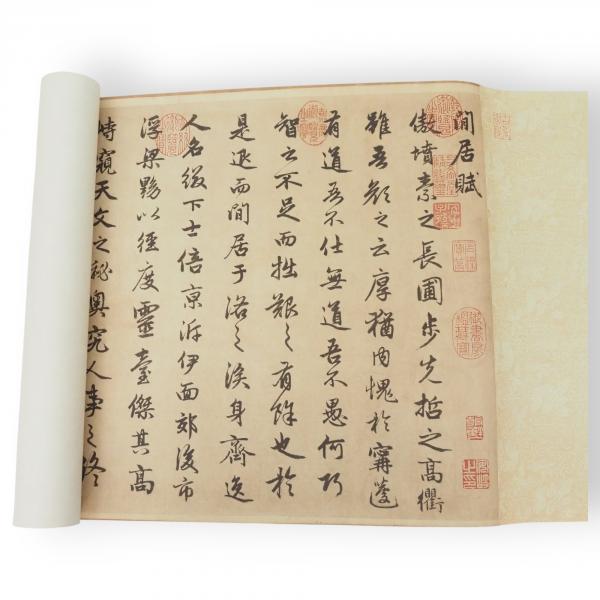 閒居賦
傲墳素之長圃步先哲之高衢
雖吾顏之云厚猶內愧於甯蘧
有道吾不仕無道吾不愚何巧
智之不足而拙艱之有餘也於
是退而閒居于洛之涘身齊逸
人名綴下士倍京泝伊面郊後市
浮梁黝以徑度靈臺傑其高
峙窺天文之祕奧究人事之終